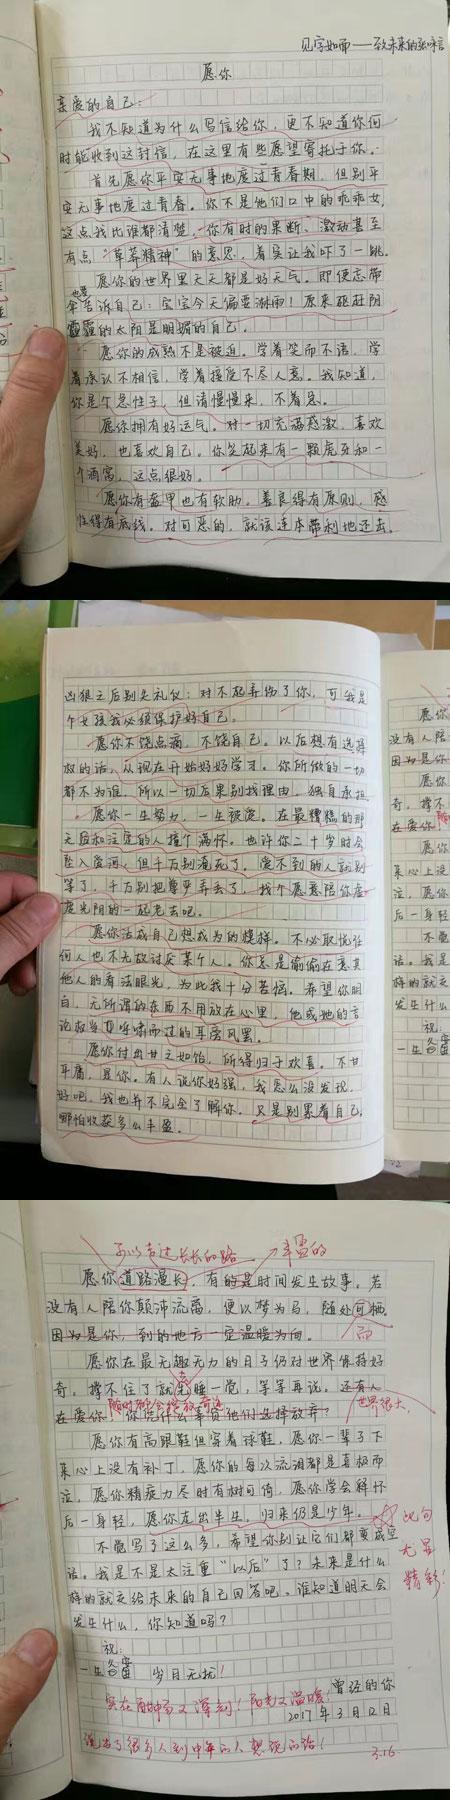 见字如面——致未来的张
愿你
亲爱的自己：
我不知道为什么写信给你，更不知道你何
时能收到这封信，在这里有些愿望寄托于你。
首先愿你平安无事地度过青春期，但别平
安无事地度过青春。你不是他们口中的乖乖女，
这点我比谁都清楚，你有时的果断、激动甚至
有点“草莽精神”的意思，着实让我吓了一跳。
愿你的世界里天天都是好天气。即使忘带
伞也要告诉自己：宝宝今天偏要淋雨！原来驱赶阴
霾的太阳是明媚的自己。
愿你的成熟不是被迫。学着笑而不语，学
着承认不相信，学着接受不尽人意。我知道，
你是个急性子，但请慢慢来，不着急。
愿你拥有好运气。对一切充满感激，喜欢
美好，也喜欢自己。你笑起来有一颗虎牙和一
个酒窝，这点很好。
愿你有盔甲也有软肋。善良得有原则，感
性得有底线。对可恶的，就该连本带利地还击。
凶狠之后别失礼仪：对不起弄伤了你，可我是
个女孩我必须保护好自己。
愿你不饶点滴，不饶自己。以后想有选择
权的话，从现在开始好好学习。你所做的一切
都不为谁，所以一切后果别找理由，独自承担。
愿你一生努力，一生被爱。在最糟糕的那
天后和注定的人撞个满怀。也许你二十岁时会
坠入爱河，但千万别淹死了，爱不到的人就别
等了，千万别把尊严弄丢了，找个愿意陪你虚
度光阴的一起老去吧。
愿你活成自己想成为的模样。不必取悦任
何人也不无故讨厌某个人。你总是偷偷在意其
他人的看法眼光，为此我十分苦恼。希望你明
白，无所谓的东西不用放在心里，他或她的言
论权当是呼啸而过的耳旁风罢。
愿你付出甘之如饴，所得归于欢喜。不甘
平庸，是你。有人说你好强，我怎么没发现，
好吧，我也并不完全了解你。只是别累着自己，
哪怕收获多么丰盈。
可以走过长长的路 丰盈的
愿你道路漫长，有的是时间发生故事。若
没有人陪你颠沛流离，便以梦为马，随处可栖。
因为是你，到的地方一定温暖为向。
而
愿你在最无趣无力的日子仍对世界保持好
奇。撑不住了就去睡一觉，等等再说。还有人
在爱你，你凭什么辜负他们选择放弃？
随时都会绽放奇迹
世界很大，
愿你有高跟鞋但穿着球鞋，愿你一辈子下
来心上没有补丁，愿你的每次流泪都是喜极而
泣，愿你精疲力尽时有树可倚，愿你学会释怀
后一身轻，愿你走出半生，归来仍是少年。
此句
尤显
精彩！
不觉写了这么多，希望你别让它们都变成空
话。我是不是太注重“以后”了？未来是什么
样的就交给未来的自己回答吧。谁知道明天会
发生什么，你知道吗？
祝：
一生备蜜 岁月无扰！
曾经的你
2017年3月12日
实在的情文深刻！阳光又温暖！
说出了很多人到中年的人想说的话！
3.16